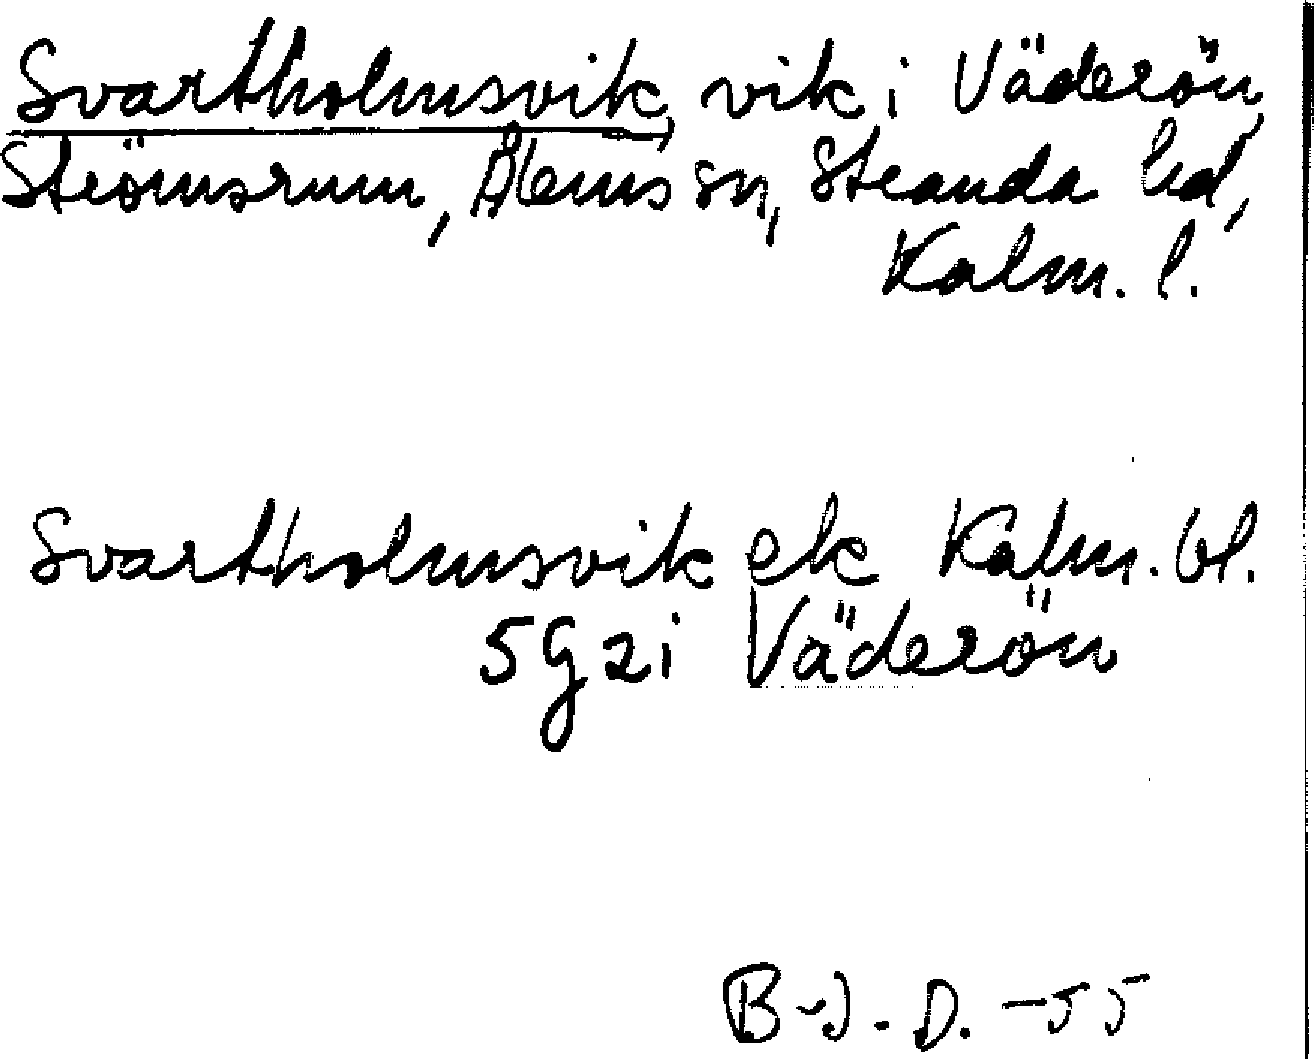 Svartholmsvik, vik i Väderön,
Strömsrum, Ålems sn, Stranda hd,
Kalm. l.
Svartholmsvik ek Kalm. bl.
5 g 2 i Väderön
B-J. D. -55